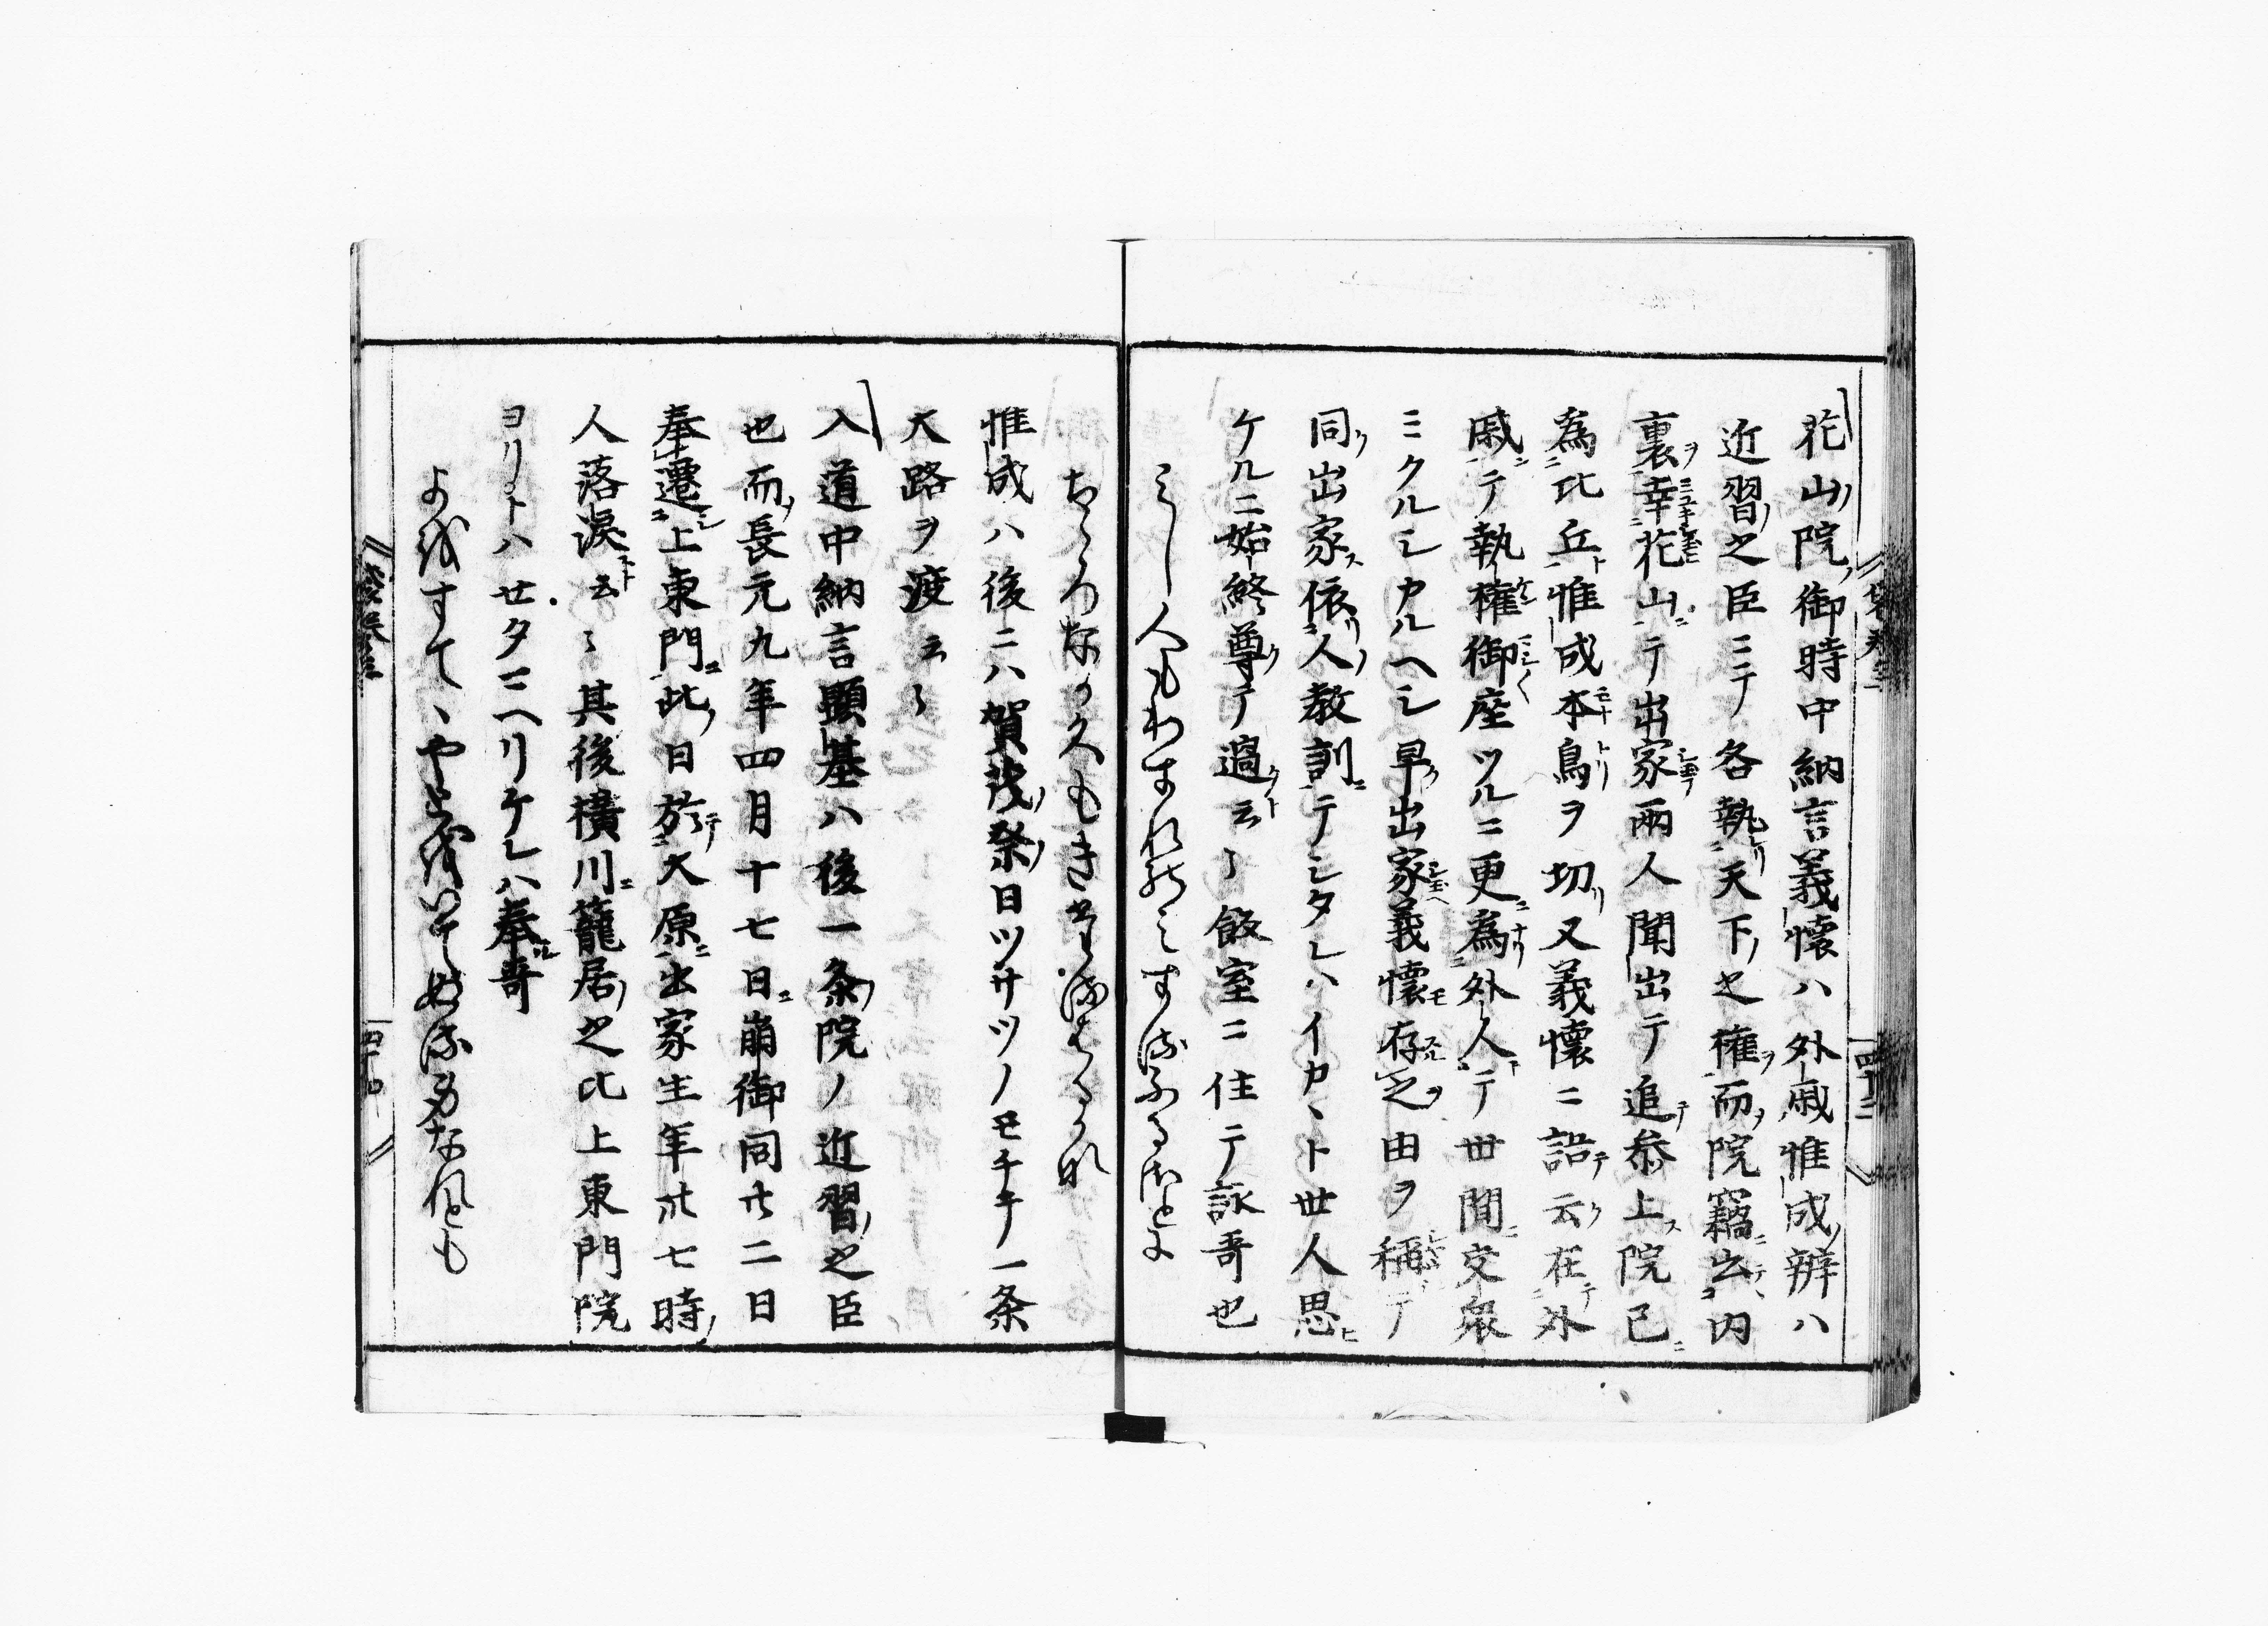 花山院御時中納言義懐ハ外戚惟成辨ハ
近習之臣ニテ各執天下之権而院竊出内
裏幸花山テ出家両人聞出テ追参上院已
為比丘惟成本鳥ヲ切又義懐ニ語云在外
戚テ執権御座ツルニ更為外人テ世間交衆
ミクルシカルヘシ早出家義懐存之由ヲ稱テ
同出家依人教訓テシタレハイカヽト世人思
ケルニ始終尊テ過云〻飯室ニ住テ詠哥也
みし人もわすれのみするふるさとに
こゝろなかくもきたるはるかな
惟成ハ後ニハ賀茂祭日ツサツノモチテ一条
大路ヲ渡云〻
入道中納言顕基ハ後一条院ノ近習之臣
也而長元九年四月十七日崩御同廿二日
奉遷上東門此日於大原出家生年卅七時
人落涙云〻其後横川籠居之比上東門院
ヨリトハセタマヘリケレハ奉哥
よをすてゝやとをいてにし身なれとも